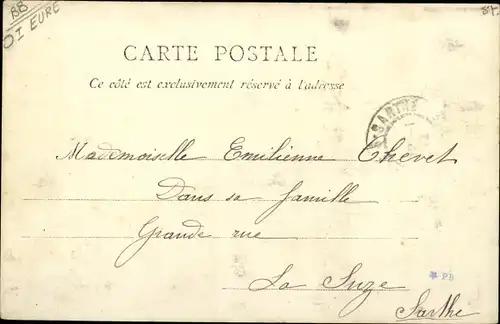 BB
OI EURE
CARTE POSTALE
Ce côté est exclusivement réservé à l'adresse
SARTHE
Mademoiselle Emilienne Chevet
Dans sa famille
Grande rue
La Suze
Sarthe
PB